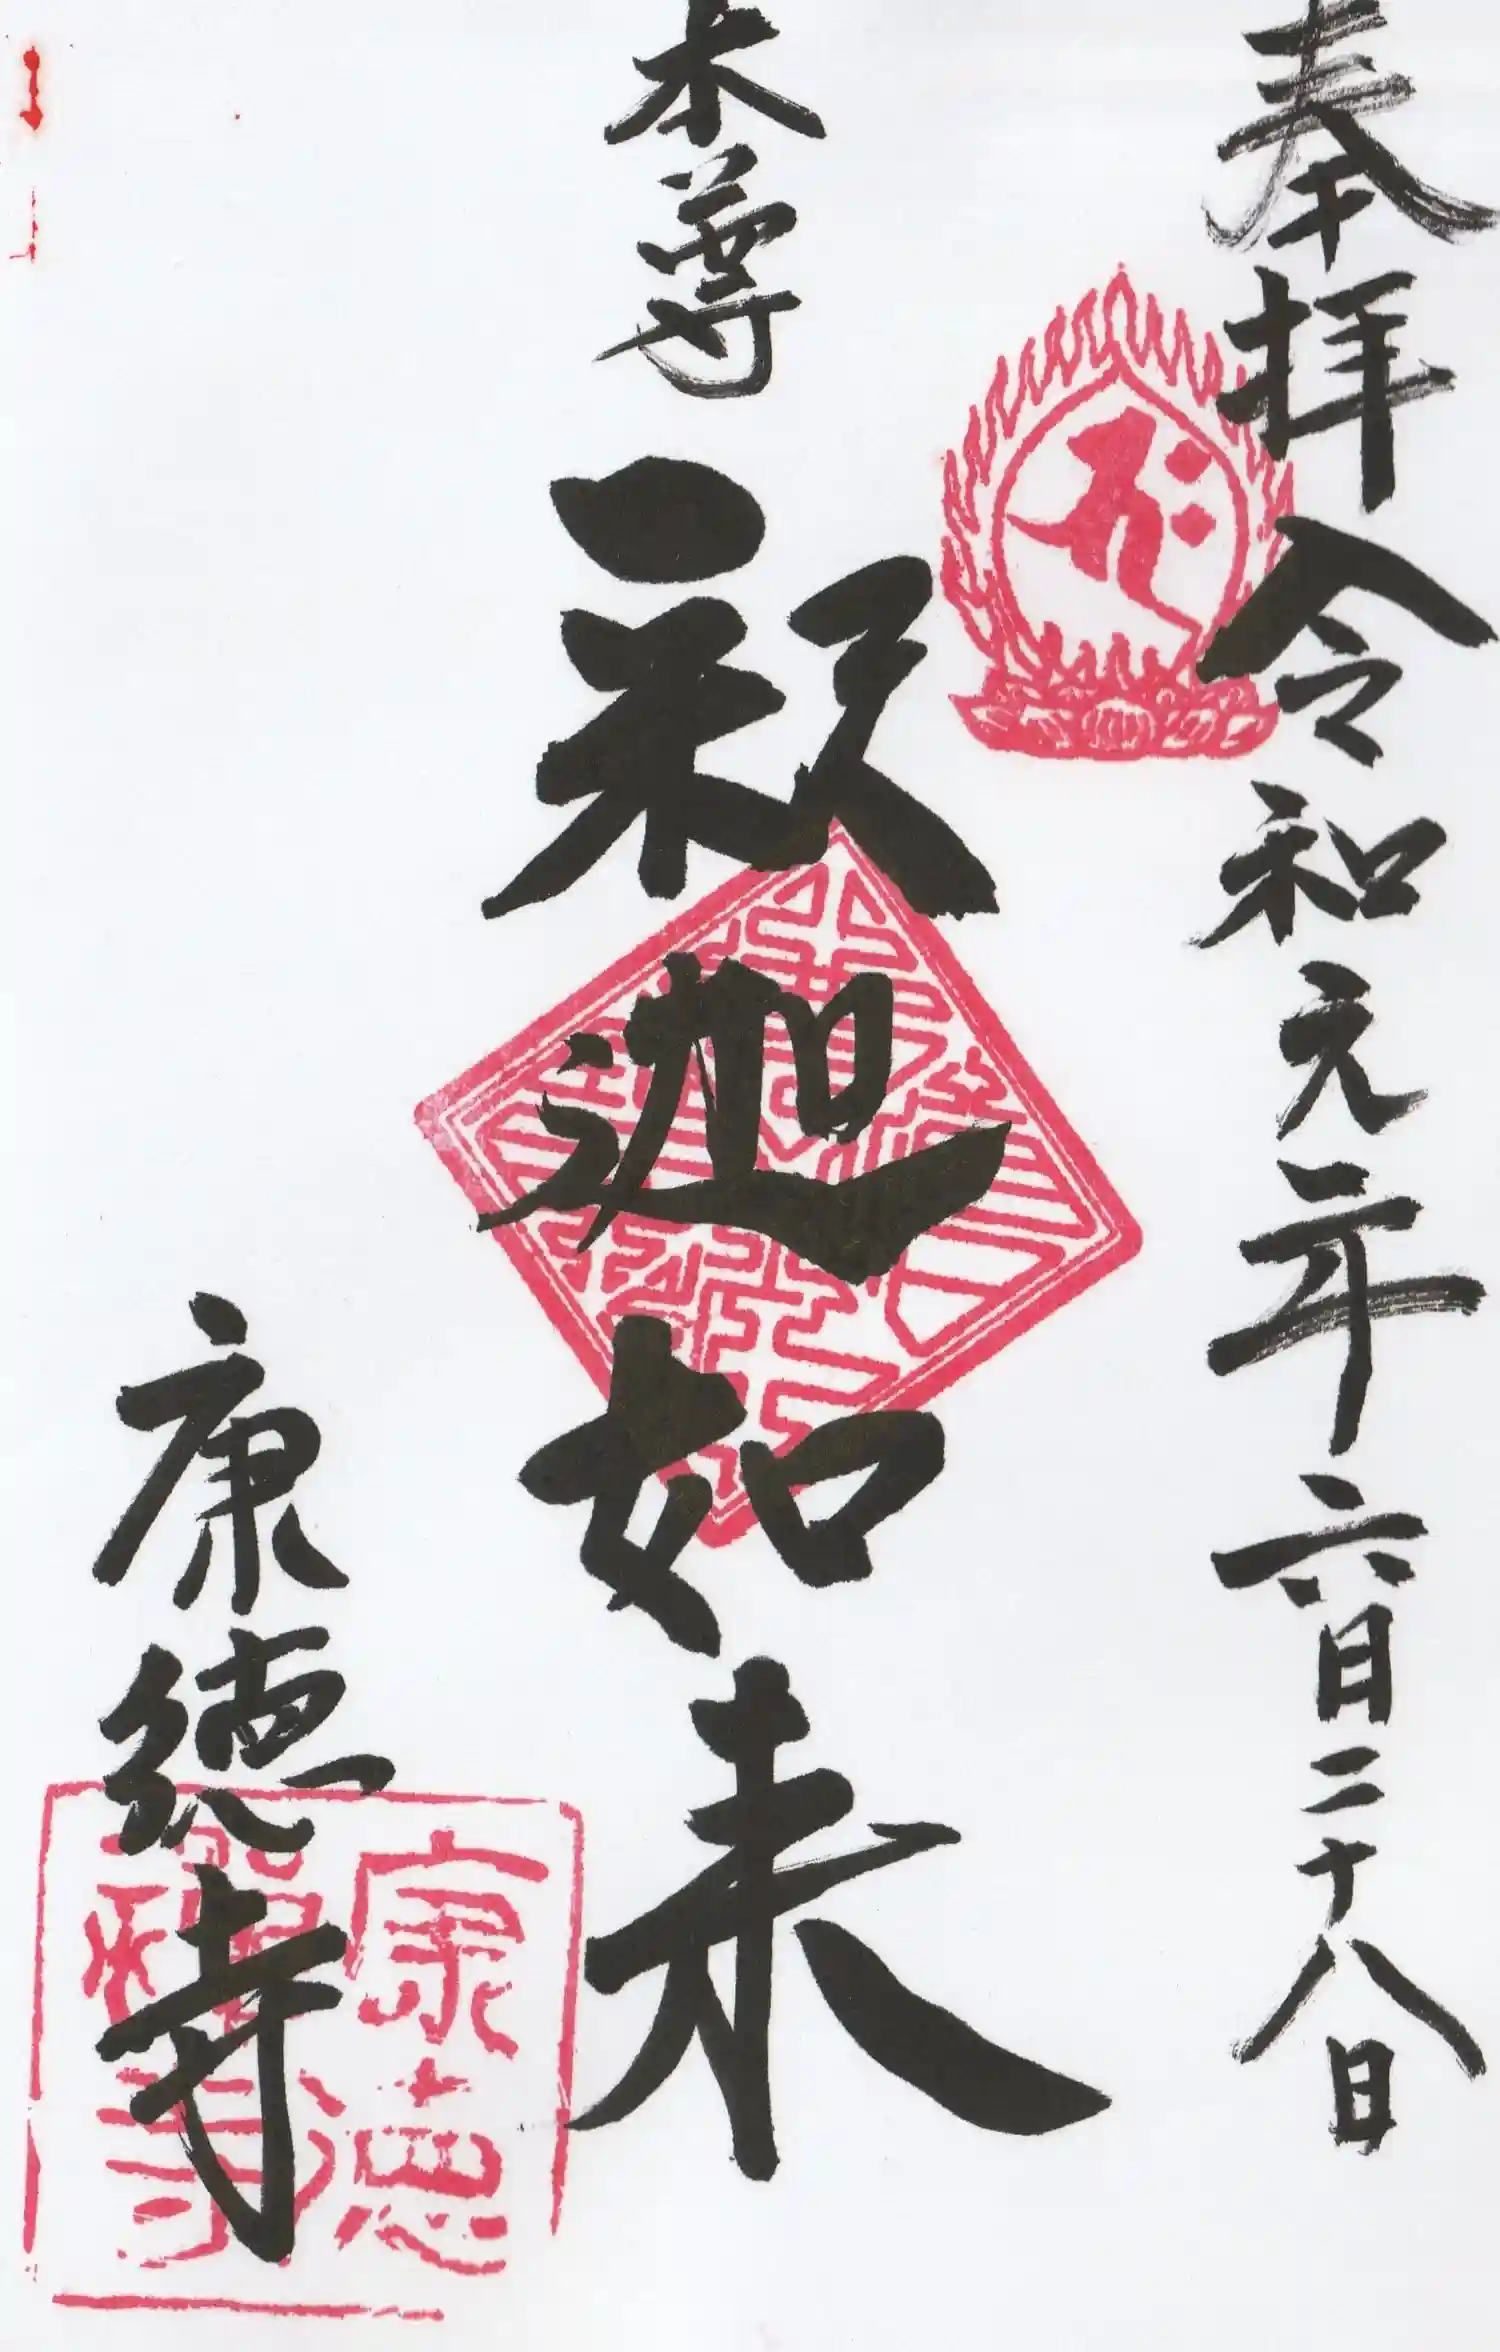 奉拝 令和元年六月二十八日
本尊 釈迦如来
康徳寺
康徳
禅寺